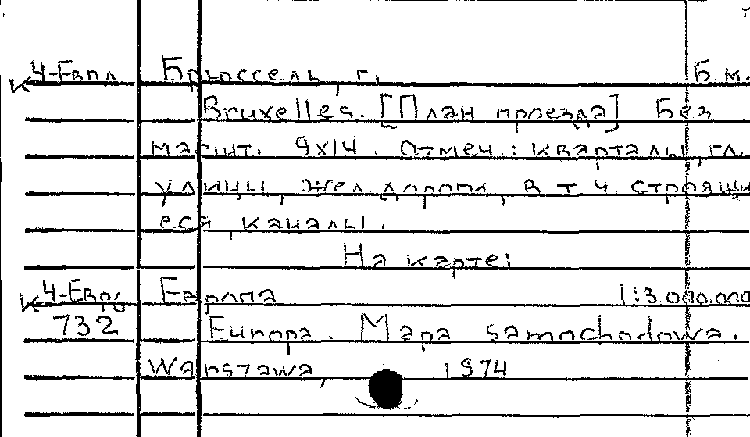 4-Евпл Брюссель, г. Б.м.
Bruxelles. [План проезда] Без
масшт. 9х14. Отмеч.: кварталы, гл.
улицы, жел. дороги, в т. ч. строящи
еся, каналы.
На карте:
К 4-Евро Европа 1:3.000.000
732 Europa. Mapa samochodowa.
Warszawa, 1974